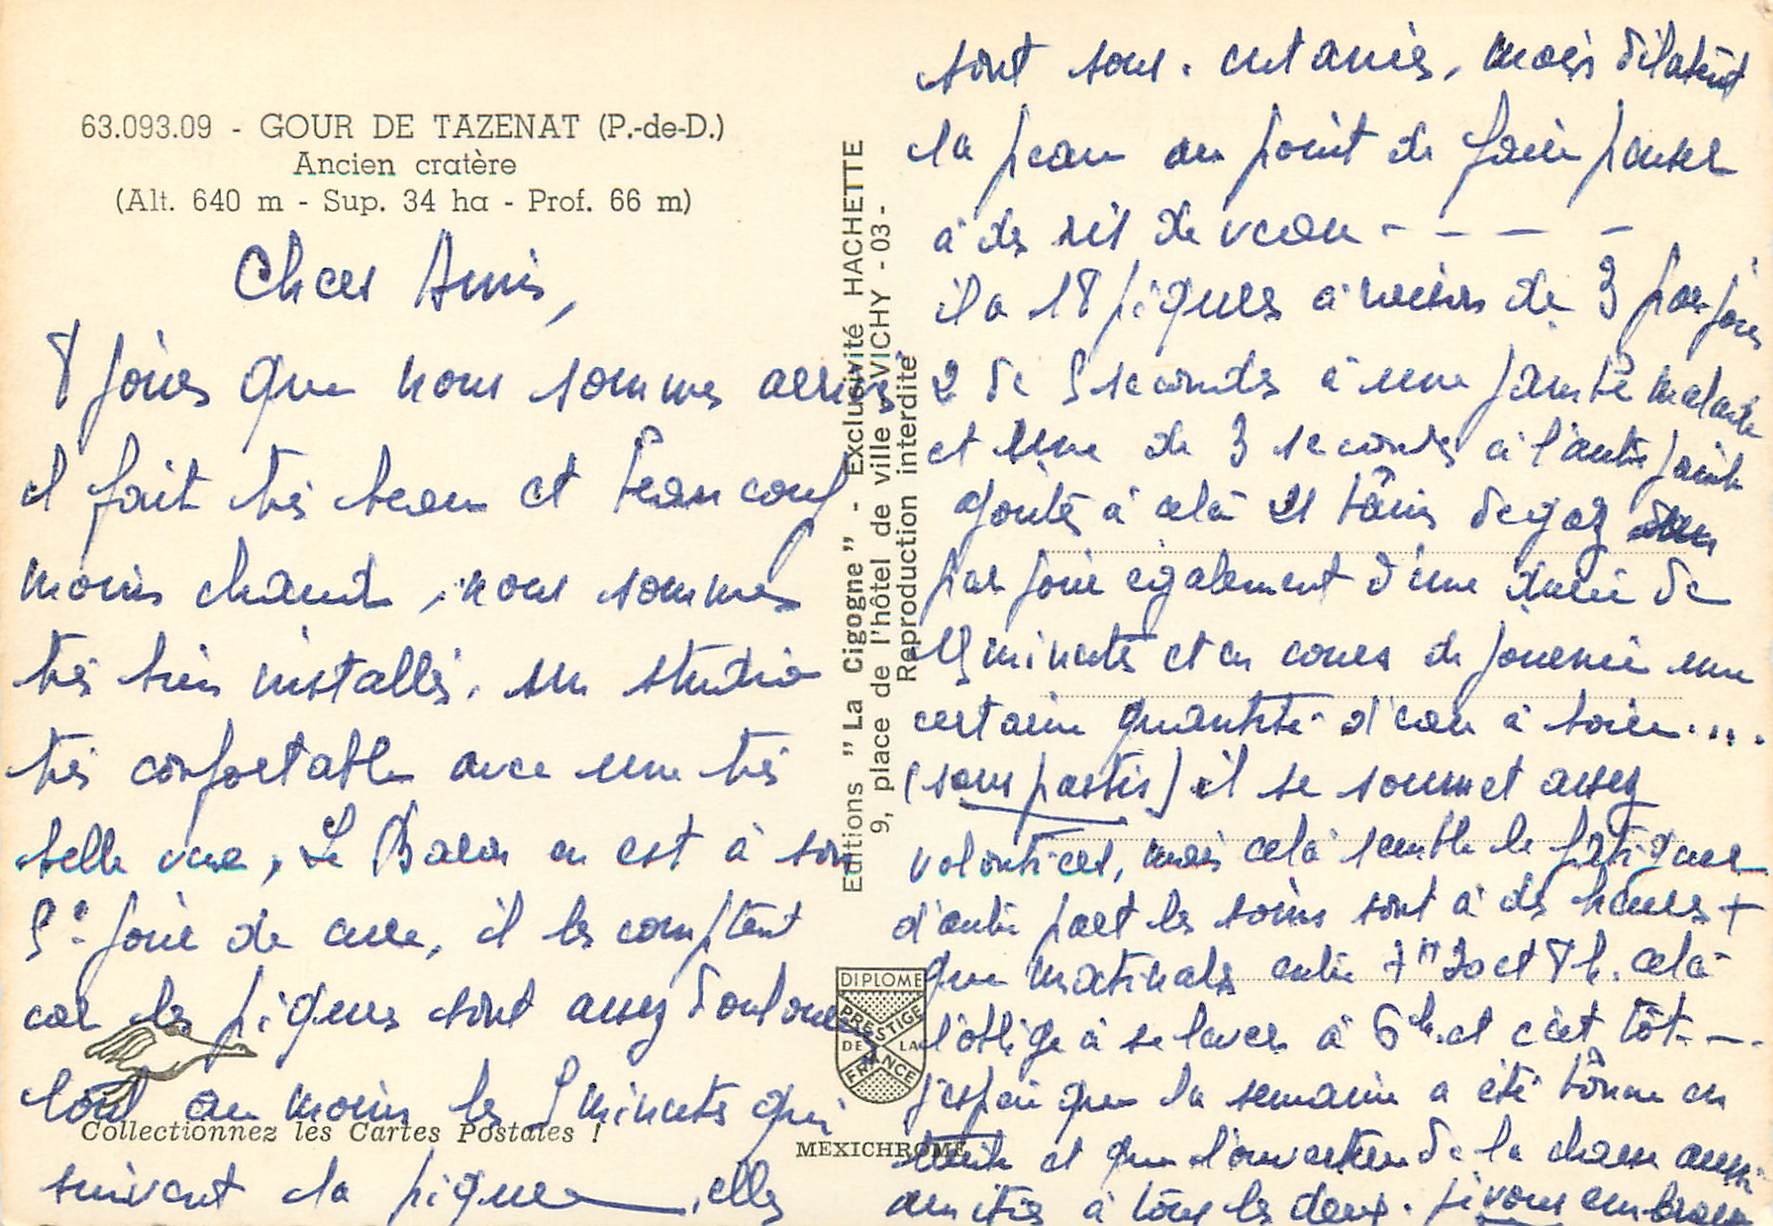 63.093.09 - GOUR DE TAZENAT (P.-de-D.)
Ancien cratère
(Alt. 640 m - Sup. 34 ha - Prof. 66 m)
Chers Amis,
8 jours que nous sommes arrivés
il fait très beau et beaucoup
moins chaud, nous sommes
très bien installés. un studio
très confortable avec une très
belle vue, Le Baron en est à son
5° jour de cure, il les comptent
car les piqures sont assez douloureuses
tout au moins les 5 minutes qui
suivent la piqure, elles
Collectionnez les Cartes Postales !
Editions "La Cigogne" - Exclusivité HACHETTE
9, place de l'hôtel de ville - VICHY - 03 -
Reproduction interdite
DIPLOME
PRESTIGE
DE LA
FRANCE
MEXICHROME
sont sous-cutanées, mais dilatent
la peau au point de faire penser
à des ris de veau - - - -
il a 18 piqures à raison de 3 par jour
2 de 5 secondes à une jambe malade
et une de 3 secondes à l'autre jambe
ajoutés à celà bains de gaz
par jour également d'une durée de
minutes et en cours de journée une
certaine quantité d'eau à boire....
(sans pastis) il se soumet assez
volontiers, mais celà semble le fatiguer
d'autre part les soins sont à des heures +
que matinales entre 7h 30 et 8 h. celà
l'oblige à se lever à 6 h. et c'est tôt - -
j'espère que la semaine a été bonne en
et que l'ouverture de la chasse aussi
amitiés à tous les deux. je vous embrasse